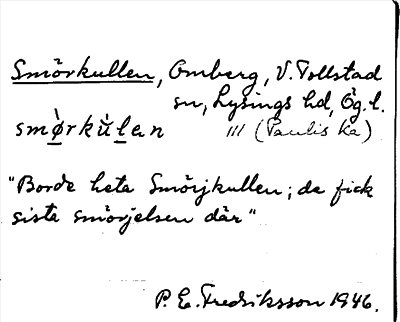 Smörkullen, Omberg, V. Tollstad
sn, Lysings hd, Ög. l.
smø̀rkùlen /// (Paulis ka)
"Borde heta Smörjkullen; de fick
sista smörjelsen där"
P. E. Fredriksson 1946.